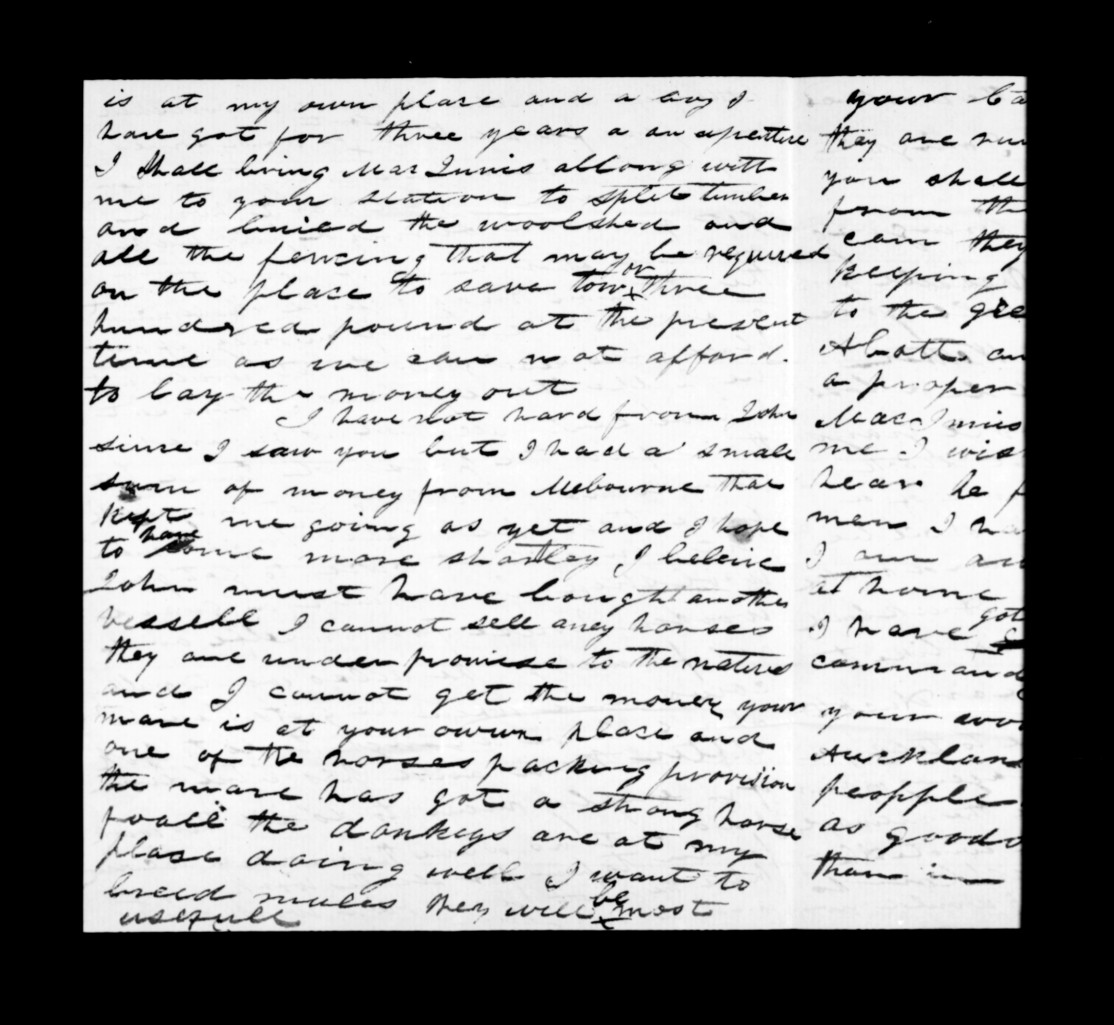 is at my own plase and a boy I
have got for three years a an apertture
I shall bring MacInnis allong with
me to your station to split timber
and buied the woolshed and
all the fencing that may be required
on the place to save tow or three
hundred pound at the present
time as we can not afford
to lay the money out
I have not hard from John
since I saw you but I had a small
sum of money from Melbourne that
kept me going as yet and I hope
to have some more shortley I beleive
John must have bought another
vessell I cannot sell aney horses
they are under promise to the natives
and I cannot get the money your
mare is at your owwn place and
one of the horses packing provision
the mare has got a strong horse
foall the donkeys are at my
plase doing well I want to
breed mules they will be most
usefull
your
they are
you shall
from
can they
keeping
to the
Abott
a proper
MacInnis
me I
hear he
men I
I am
at home
I have got
command
your
Aucklan
peopple
as good
than